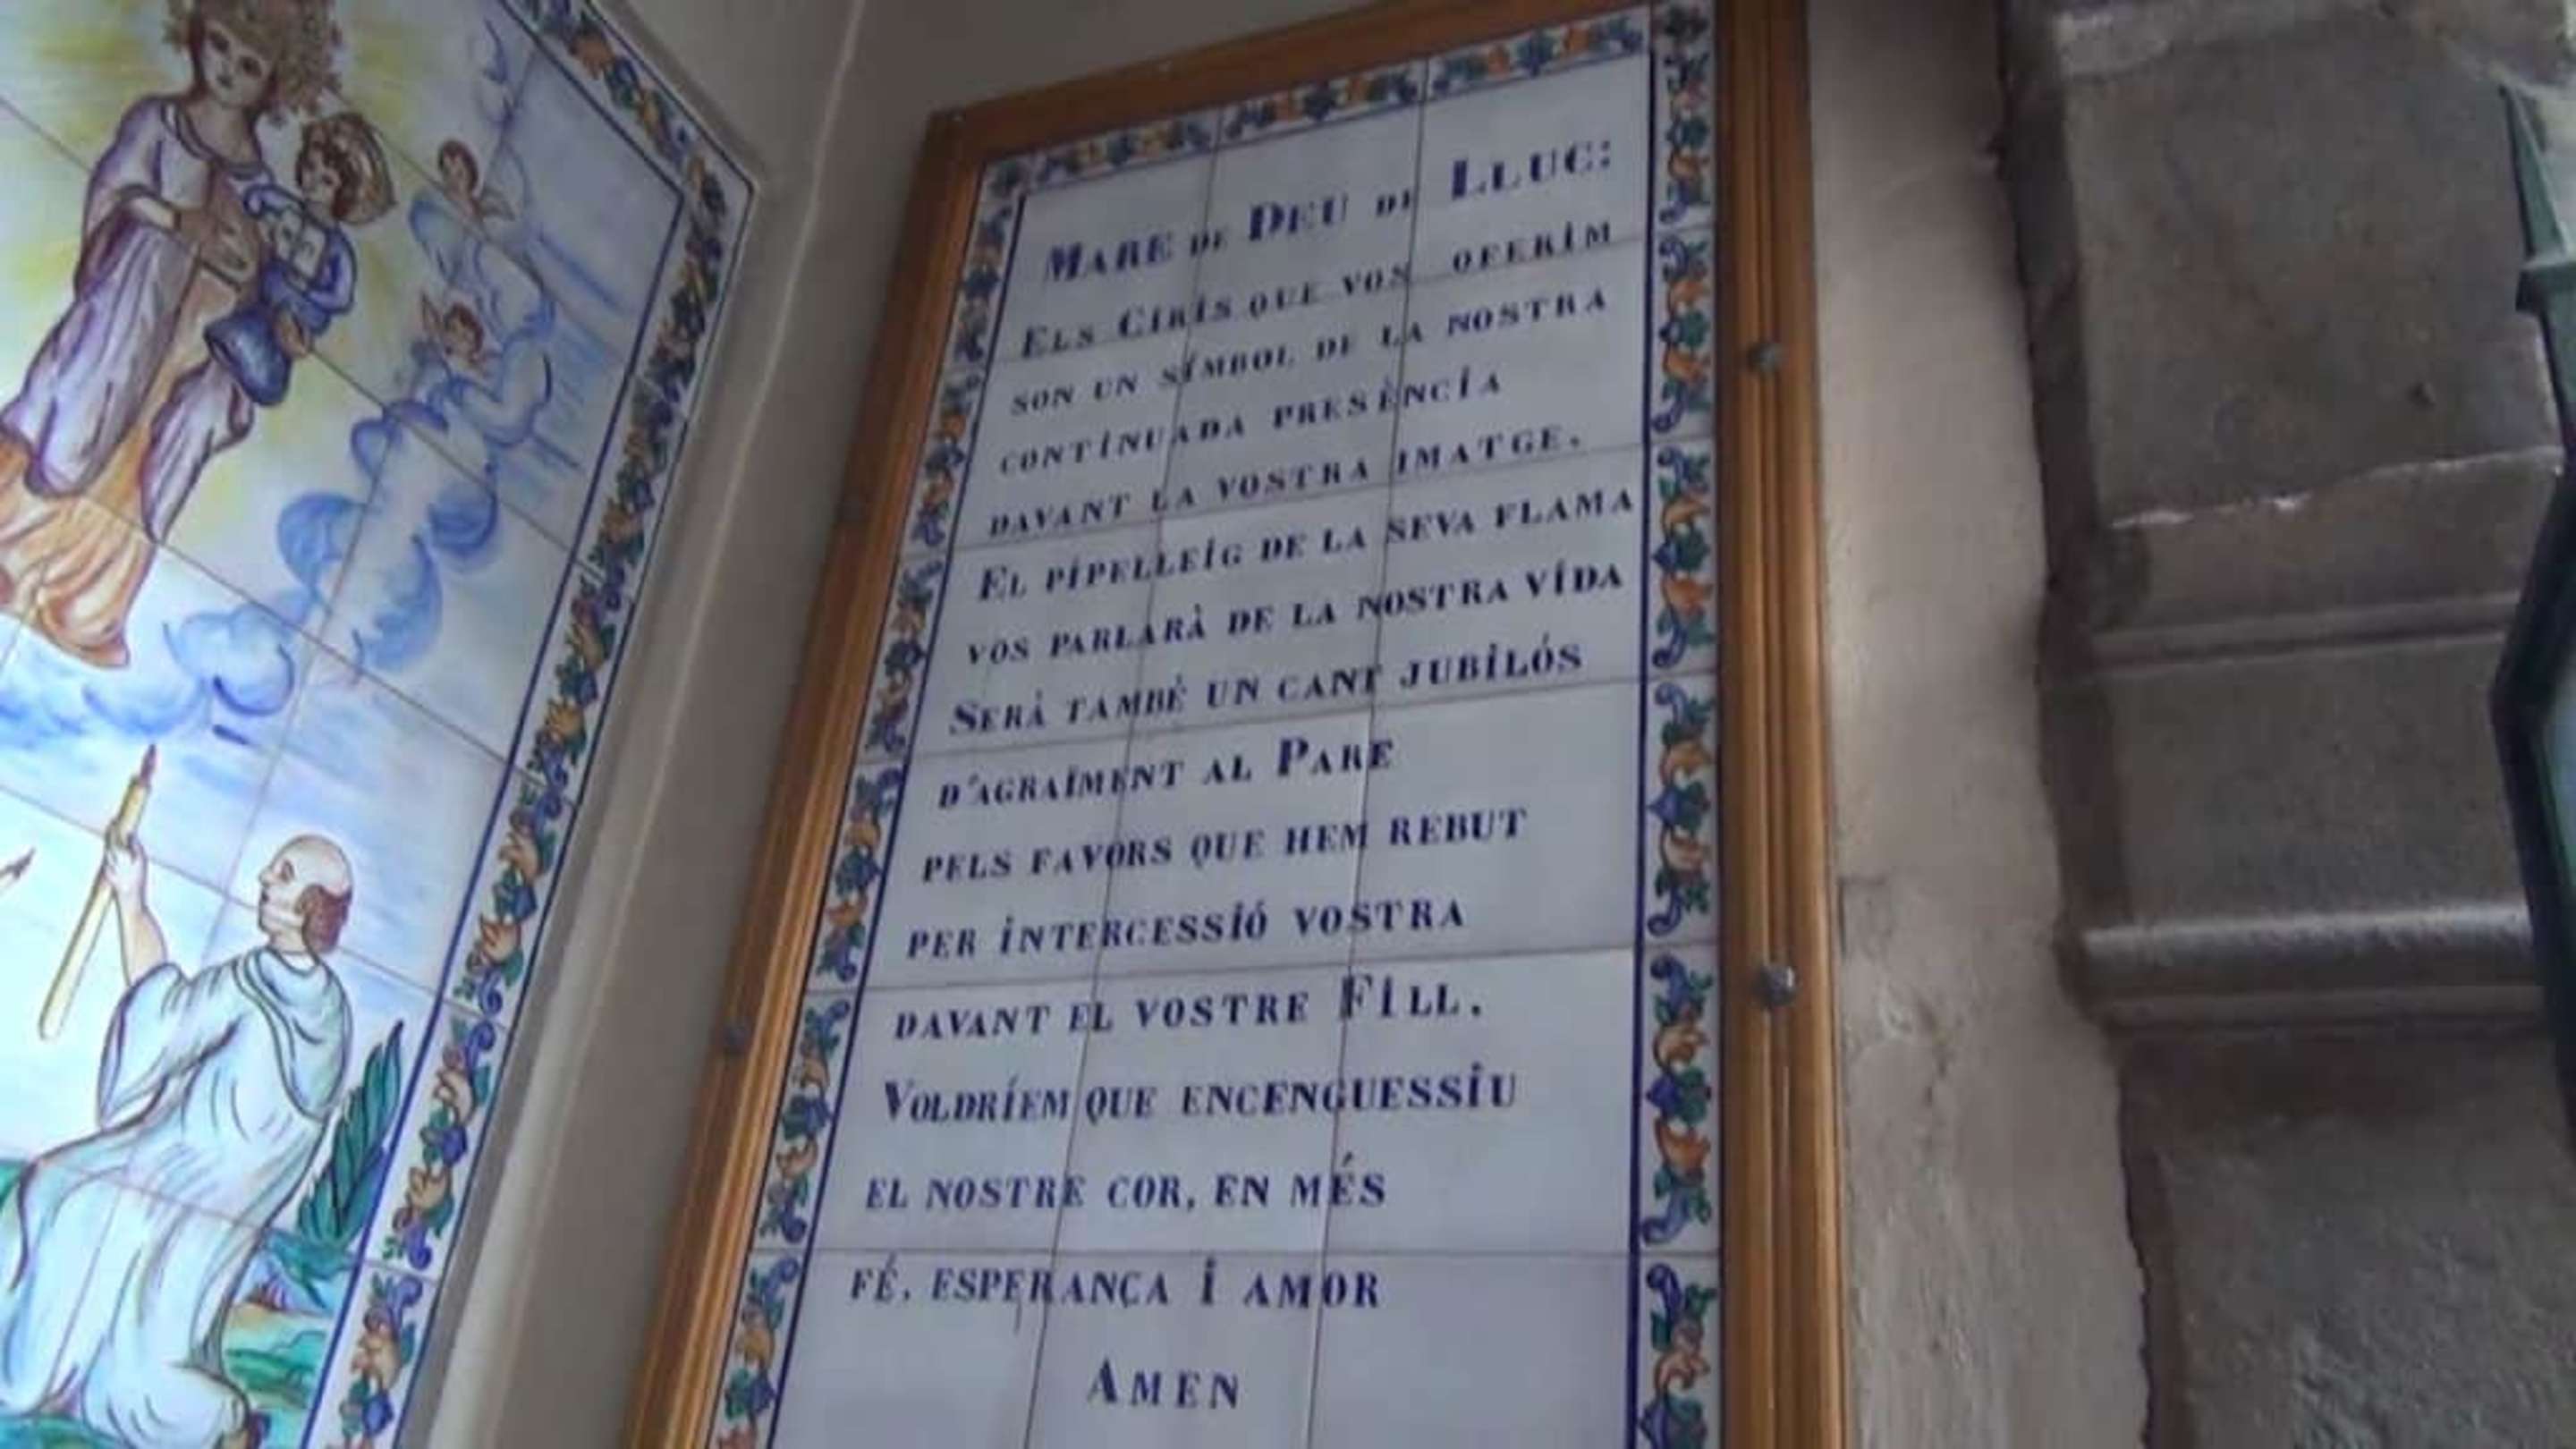 MARE DE DEU DE LLUC:
ELS CIRIS QUE VOS OFERIM
SON UN SÍMBOL DE LA NOSTRA
CONTINUADA PRESÈNCIA
DAVANT LA VOSTRA IMATGE.
EL PIPELLEIG DE LA SEVA FLAMA
VOS PARLARÀ DE LA NOSTRA VIDA
SERÀ TAMBÈ UN CANT JUBILÓS
D'AGRAÏMENT AL PARE
PELS FAVORS QUE HEM REBUT
PER INTERCESSIÓ VOSTRA
DAVANT EL VOSTRE FILL.
VOLDRÍEM QUE ENCENGUESSIU
EL NOSTRE COR, EN MÉS
FÉ, ESPERANÇA I AMOR
AMEN